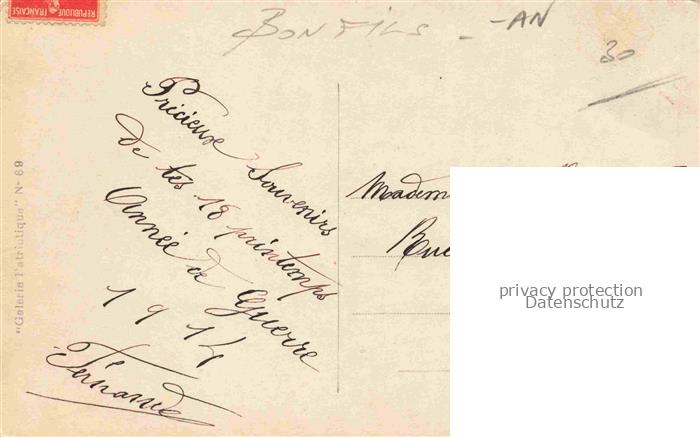 REPUBLIQUE FRANÇAISE
BONFILS - -AN
30
Précieuse Souvenirs
de tes 18 printemps
Année de Guerre
1914
Fernande
"Galerie Patriotique" N° 69
Madem
Rue
privacy protection
Datenschutz